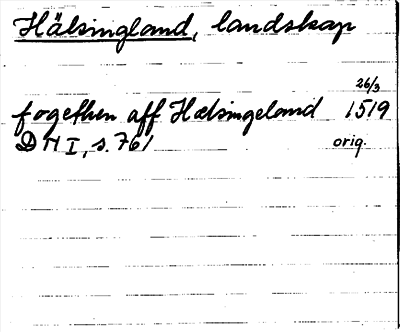 Hälsingland, landskap
26/3
fogethen aff Hælsingeland 1519
DN I, s. 761 orig.